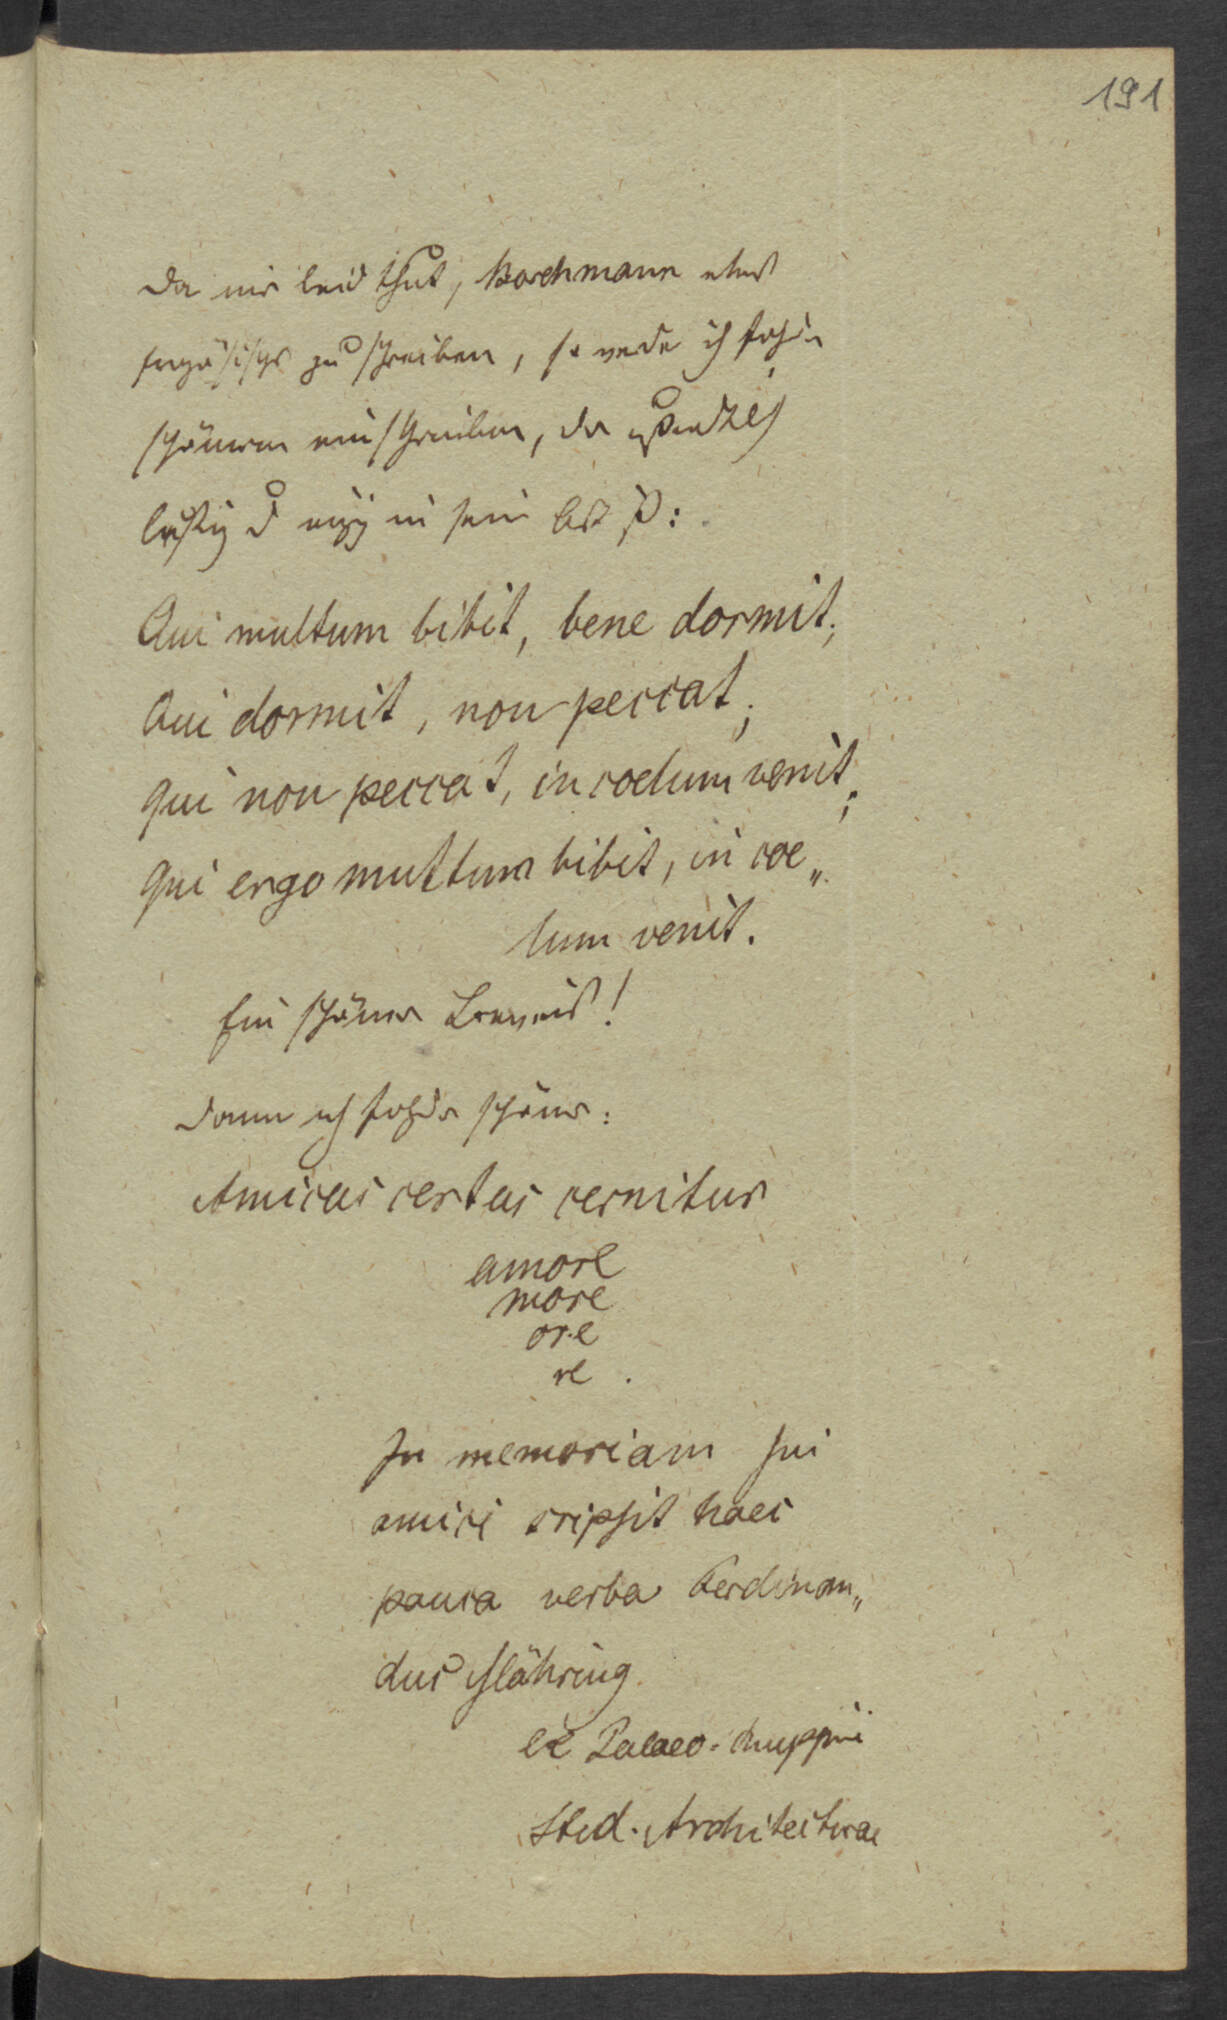 191
Da mir leid thut, Borchmann etwas
zu schreiben, so werde ich
schönen einschreiben, da
lustig u in sein ist:
Qui multum bibit, bene dormit;
Qui dormit, non peccat;
qui non peccat, in coelum venit;
Qui ergo multum bibit, in coe„
lum venit.
Ein schöner Beweis!
Dann noch schöner:
Amicus certus cernitur
amore
more
ore
re.
In memoriam sui
amici cripsit haec
pauca verba Ferdinan„
dus Mähring
ex Palaeo-Ruppin
Stud. Architecturae